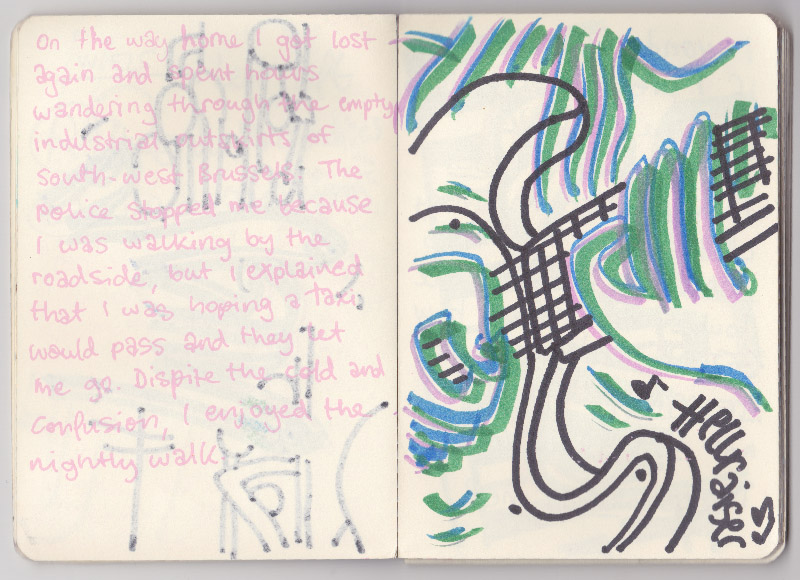 On the way home I got lost
again and spent hours
wandering through the empty
industrial outskirts of
south-west Brussels. The
police stopped me because
I was walking by the
roadside, but I explained
that I was hoping a taxi
would pass and they let
me go. Dispite the cold and
confusion, I enjoyed the
nightly walk